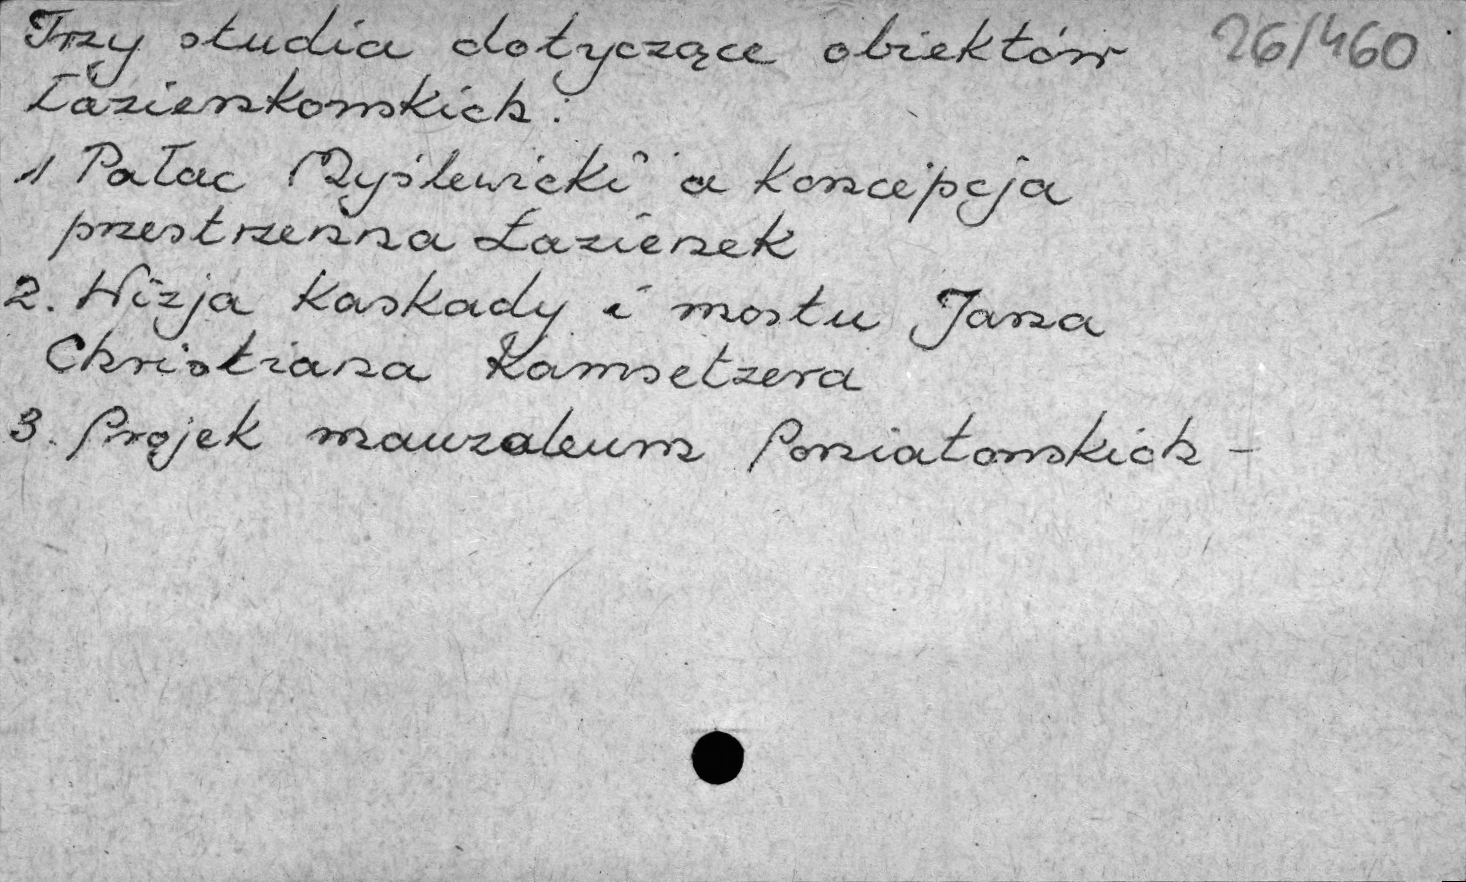 Trzy studia dotyczące obiektów 26/460
Łazienkowskich:
1 Pałac Myślewicki a koncepcja
przestrzenna Łazienek
2. Wizja kaskady i mostu Jana
Christiana Kamsetzera
3. Projek mauzoleum Poniatowskich -